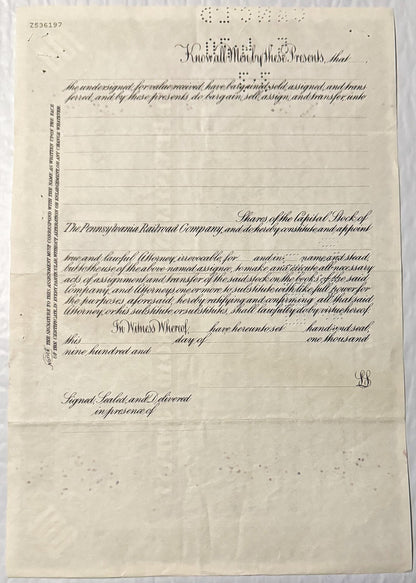 Z536197
Know all Men by these Presents, that
the undersigned, for value received, have bargained, sold, assigned, and trans
ferred, and by these presents do bargain, sell, assign, and transfer, unto
Shares of the Capital Stock of
The Pennsylvania Railroad Company, and do hereby constitute and appoint
true and lawful Attorney, irrevocable, for and in name and stead,
but to the use of the above named assignee, to make and execute all necessary
acts of assignment and transfer of the said stock on the books of the said
Company, and Attorneys, one or more, to substitute with like full power for
the purposes aforesaid, hereby ratifying and confirming all that said
Attorney, or his substitute or substitutes, shall lawfully do by virtue hereof
In Witness Whereof, have hereunto set hand and seal,
this day of one thousand
nine hundred and
L.S.
Signed, Sealed, and Delivered
in presence of
NOTE. THE SIGNATURE TO THIS ASSIGNMENT MUST CORRESPOND WITH THE NAME AS WRITTEN UPON THE FACE
OF THE CERTIFICATE, IN EVERY PARTICULAR, WITHOUT ALTERATION OR ENLARGEMENT, OR ANY CHANGE WHATEVER.